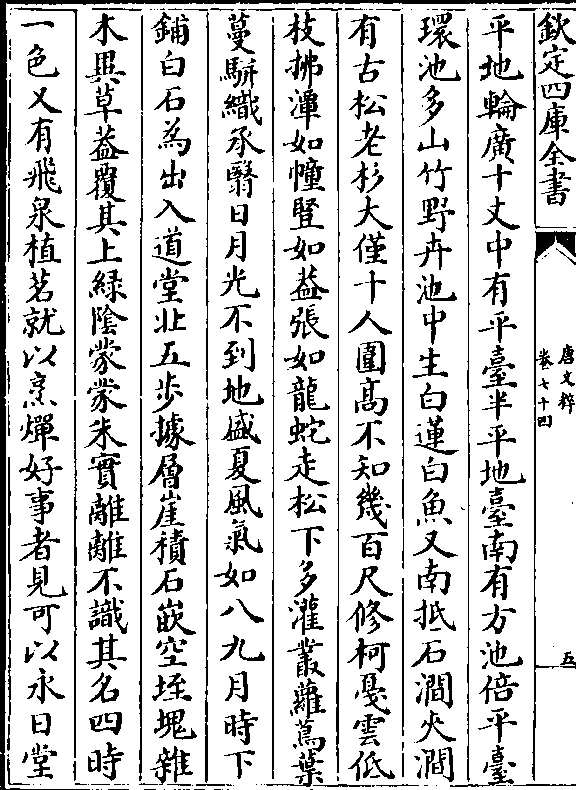 欽定四庫全書
唐文粹
卷七十四
五
平地輪廣十丈中有平臺半平地臺南有方池倍平臺
環池多山竹野卉池中生白蓮白魚又南抵石澗夾澗
有古松老杉大僅十人圍髙不知幾百尺修柯戞雲低
枝拂潭如幢豎如蓋張如龍蛇走松下多灌叢蘿蔦葉
蔓駢織承翳日月光不到地盛夏風氣如八九月時下
鋪白石為出入道堂北五步據層崖積石嵌空垤塊雜
木異草葢覆其上緑隂蒙蒙朱實離離不識其名四時
一色又有飛泉植茗就以烹燀好事者見可以永日堂